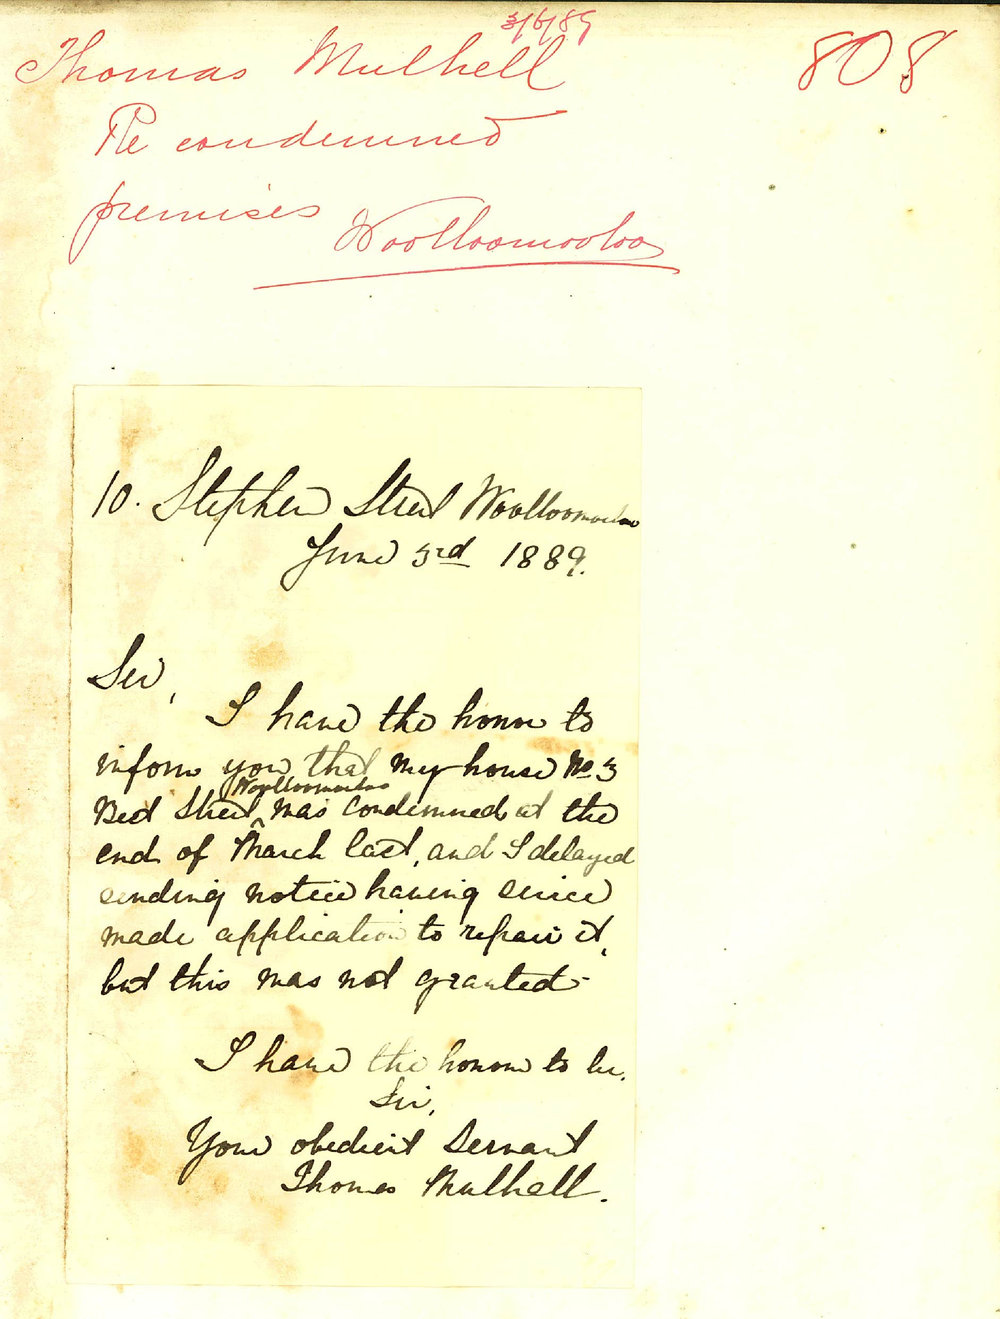 3/6/89
Thomas Mulhell 808
Re condemned
premises
Woolloomooloo
10. Stephen Street Woolloomooloo
June 3rd 1889.
Sir,
I have the honor to
inform you that my house No 3
Woolloomooloo
Best Street ^ was condemned at the
end of March last, and I delayed
sending notice having since
made application to repair it,
but this was not granted-
I have the honour to be.
Sir,
Your obedient Servant
Thomas Mulhall.